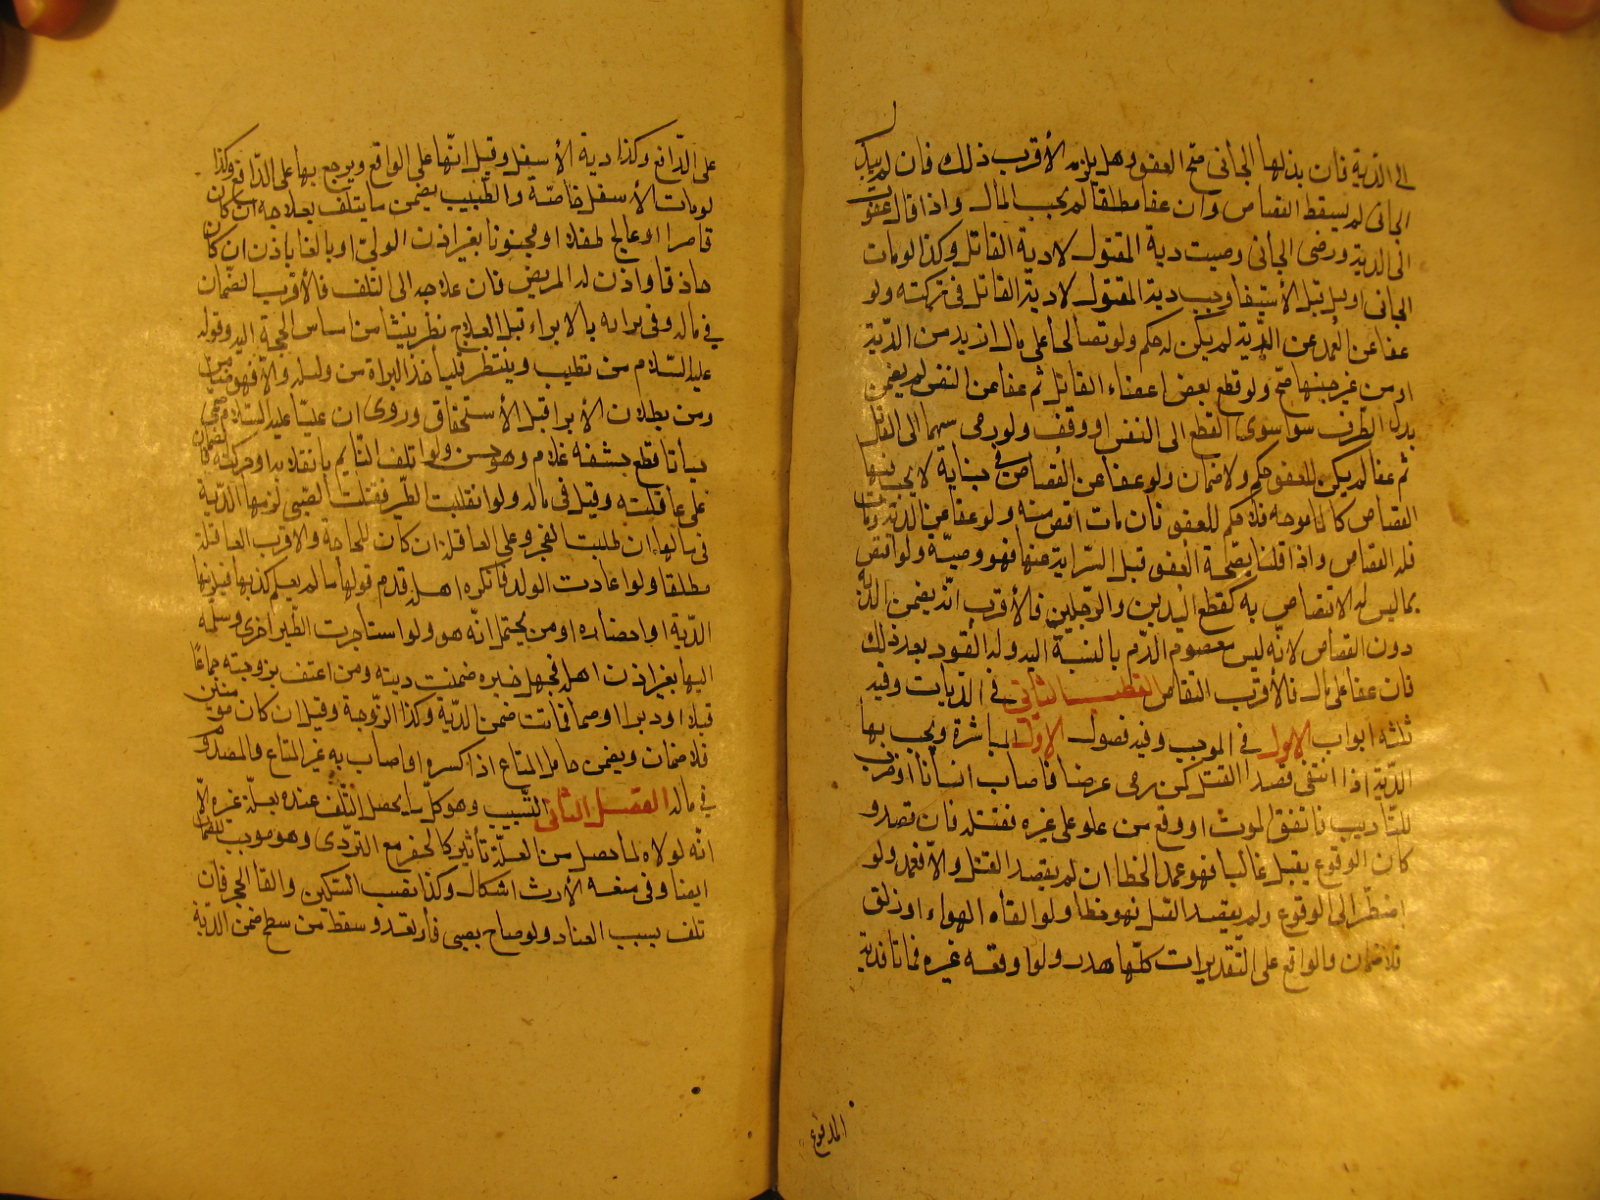 الى الدّية فان بذلها الجانى صح العفو وهل يلزمه الأقرب ذلك فان لم يبذل
الجانى لم يسقط القصاص وان عفا مطلقا لم يجب المال واذا قال عفوت
الى الدية ورضى الجانى وجبت دية المقتول لا دية القاتل وكذا لو مات
الجانى او قتل قبل الأستيفا وجب دية المقتول لا ديّة القاتل فى تركته ولو
عفا عن العمد عن الدّية لم يكن له حكم ولو تصالحا على مال ازيد من الدّية
او من غير جنسها صح ولو قطع بعض اعضاء القاتل ثم عفا عن النفس لم يضمن
بدل الطّرف سوا سرى القطع الى النفس او وقف ولو رمى سهما الى القاتل
ثم عفا لم يكن للعفو حكم ولا ضمان ولو عفا عن القصاص فى جناية لا يجب فيها
القصاص كالمأمومة فلا حكم للعفو فان مات اقتص منه ولو عفا عن الدية ومات
فله القصاص واذا قلنا بصّحة العفو قبل السّراية عنها فهو وصيّة ولو اقتص
بما ليس له الاقتصاص به كقطع اليدين والرّجلين فالأقرب انّه يضمن الدّية
دون القصاص لانّه ليس معصوم الدّم بالنسبة اليه وله القود بعد ذلك
فان عفا على مال فالأقرب التقاص القطب الثانى فى الدّيات وفيه
ثلثه ابواب الاول فى الموجب وفيه فصول الاوّل المباشرة ويجب بها
الدّية اذا انتفى قصد القتل كمن رمى غرضا فاصاب انسانا او ضرب
للتأديب فاتفق الموت او وقع من علو على غيره فقتله فان قصد و
كان الوقوع يقتل غالبا فهو عمد الخطا ان لم يقصد القتل والاّ فعمد ولو
اضطّر الى الوقوع ولم يقصد القتل فهو خطا ولو القأه الهواء او زلق
فلا ضمان والواقع على التّقديرات كلّها هدر ولو اوقعه غيره فماتا فدية
المدفوع
على الدّافع وكذا دية الأسفل وقيل انّها على الواقع ويرجع بها على الدّافع وكذا
لو مات الأسفل خاصّة والطّبيب يضمن ما يتلف بعلاجه ان كان
قاصرا او عالج طفلا او مجنونا بغير اذن الولىّ او بالغا باذن ان كان
حاذقا واذن له المريض فان علاجه الى التلف فالأقرب الضّمان
فى ماله وفى براءته بالابراء قبل العلاج نظر ينشا من اساس الحجة اليه وقوله
عليه السّلام من تطبب وينتظر فليأخذ البراة من وليّه والاّ فهو ضامن
ومن بطلان الأبرا قبل الأستحقاق وروى ان عليّا عليه السّلام ضمن
ختانا قطع حشفه غلام وهو حسن ولو اتلف النّايم بانقلابه او حركته فالضمان
على عاقلته وقيل فى ماله ولو انقلبت الظّير فقتلت الصّبى لزمها الدّية
فى مالها ان طلبت الفخر وعلى العاقلة ان كان للحاجة والاقرب العاقلة
مطلقا ولو اعادت الولد فانكره اهله قدم قولها ما لم يعلم كذبها فيلزمها
الدّية او احضاره او من يحتمل انّه هو ولو استأجرت الظّير اخرى وسلّمه
اليها بغير اذن اهله فجهل خبره ضمنت ديته ومن اعنف بزوجته جماعا
قبلا او دبرا او ضما فماتت ضمن الدّية وكذا الزّوجة وقيل ان كان مؤتمنين
فلا ضمان ويضمن حامل المتاع اذا كسره او اصاب به غير المتاع والمصدو
فى ماله الفصل الثانى التّسبيب وهو كلّ ما يحصل التّلف عنده بعلّة غيره الاّ
انّه لولاه لما حصل من العلّة تأثير كالحفر مع التردّى وهو موجب للضّمان
ايضا وفى منعه الأرث اشكال وكذا نصب السّكين والقا الحجر فان
تلف بسبب العثار ولو صاح بصبى فارتعد وسقط من سطح ضمن الدّية